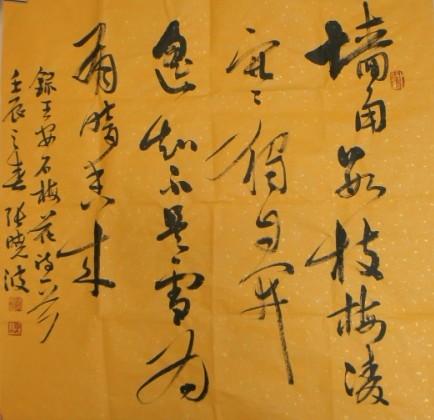 墙角数枝梅凌
寒独自开
遥知不是雪为
有暗香来
録王安石梅花诗一首
壬辰之春张晓波